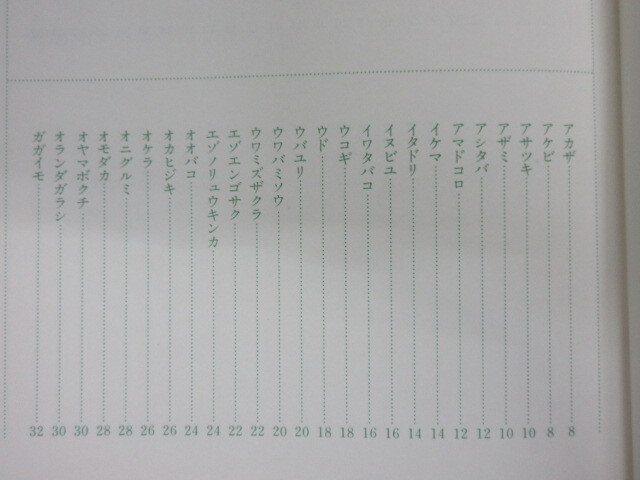 アカザ 8
アケビ 8
アサツキ 10
アザミ 10
アシタバ 12
アマドコロ 12
イケマ 14
イタドリ 14
イヌビユ 16
イワタバコ 16
ウコギ 18
ウド 18
ウバユリ 20
ウワバミソウ 20
ウワミズザクラ 22
エゾエンゴサク 22
エゾノリュウキンカ 24
オオバコ 24
オカヒジキ 26
オケラ 26
オニグルミ 28
オモダカ 28
オヤマボクチ 30
オランダガラシ 30
ガガイモ 32